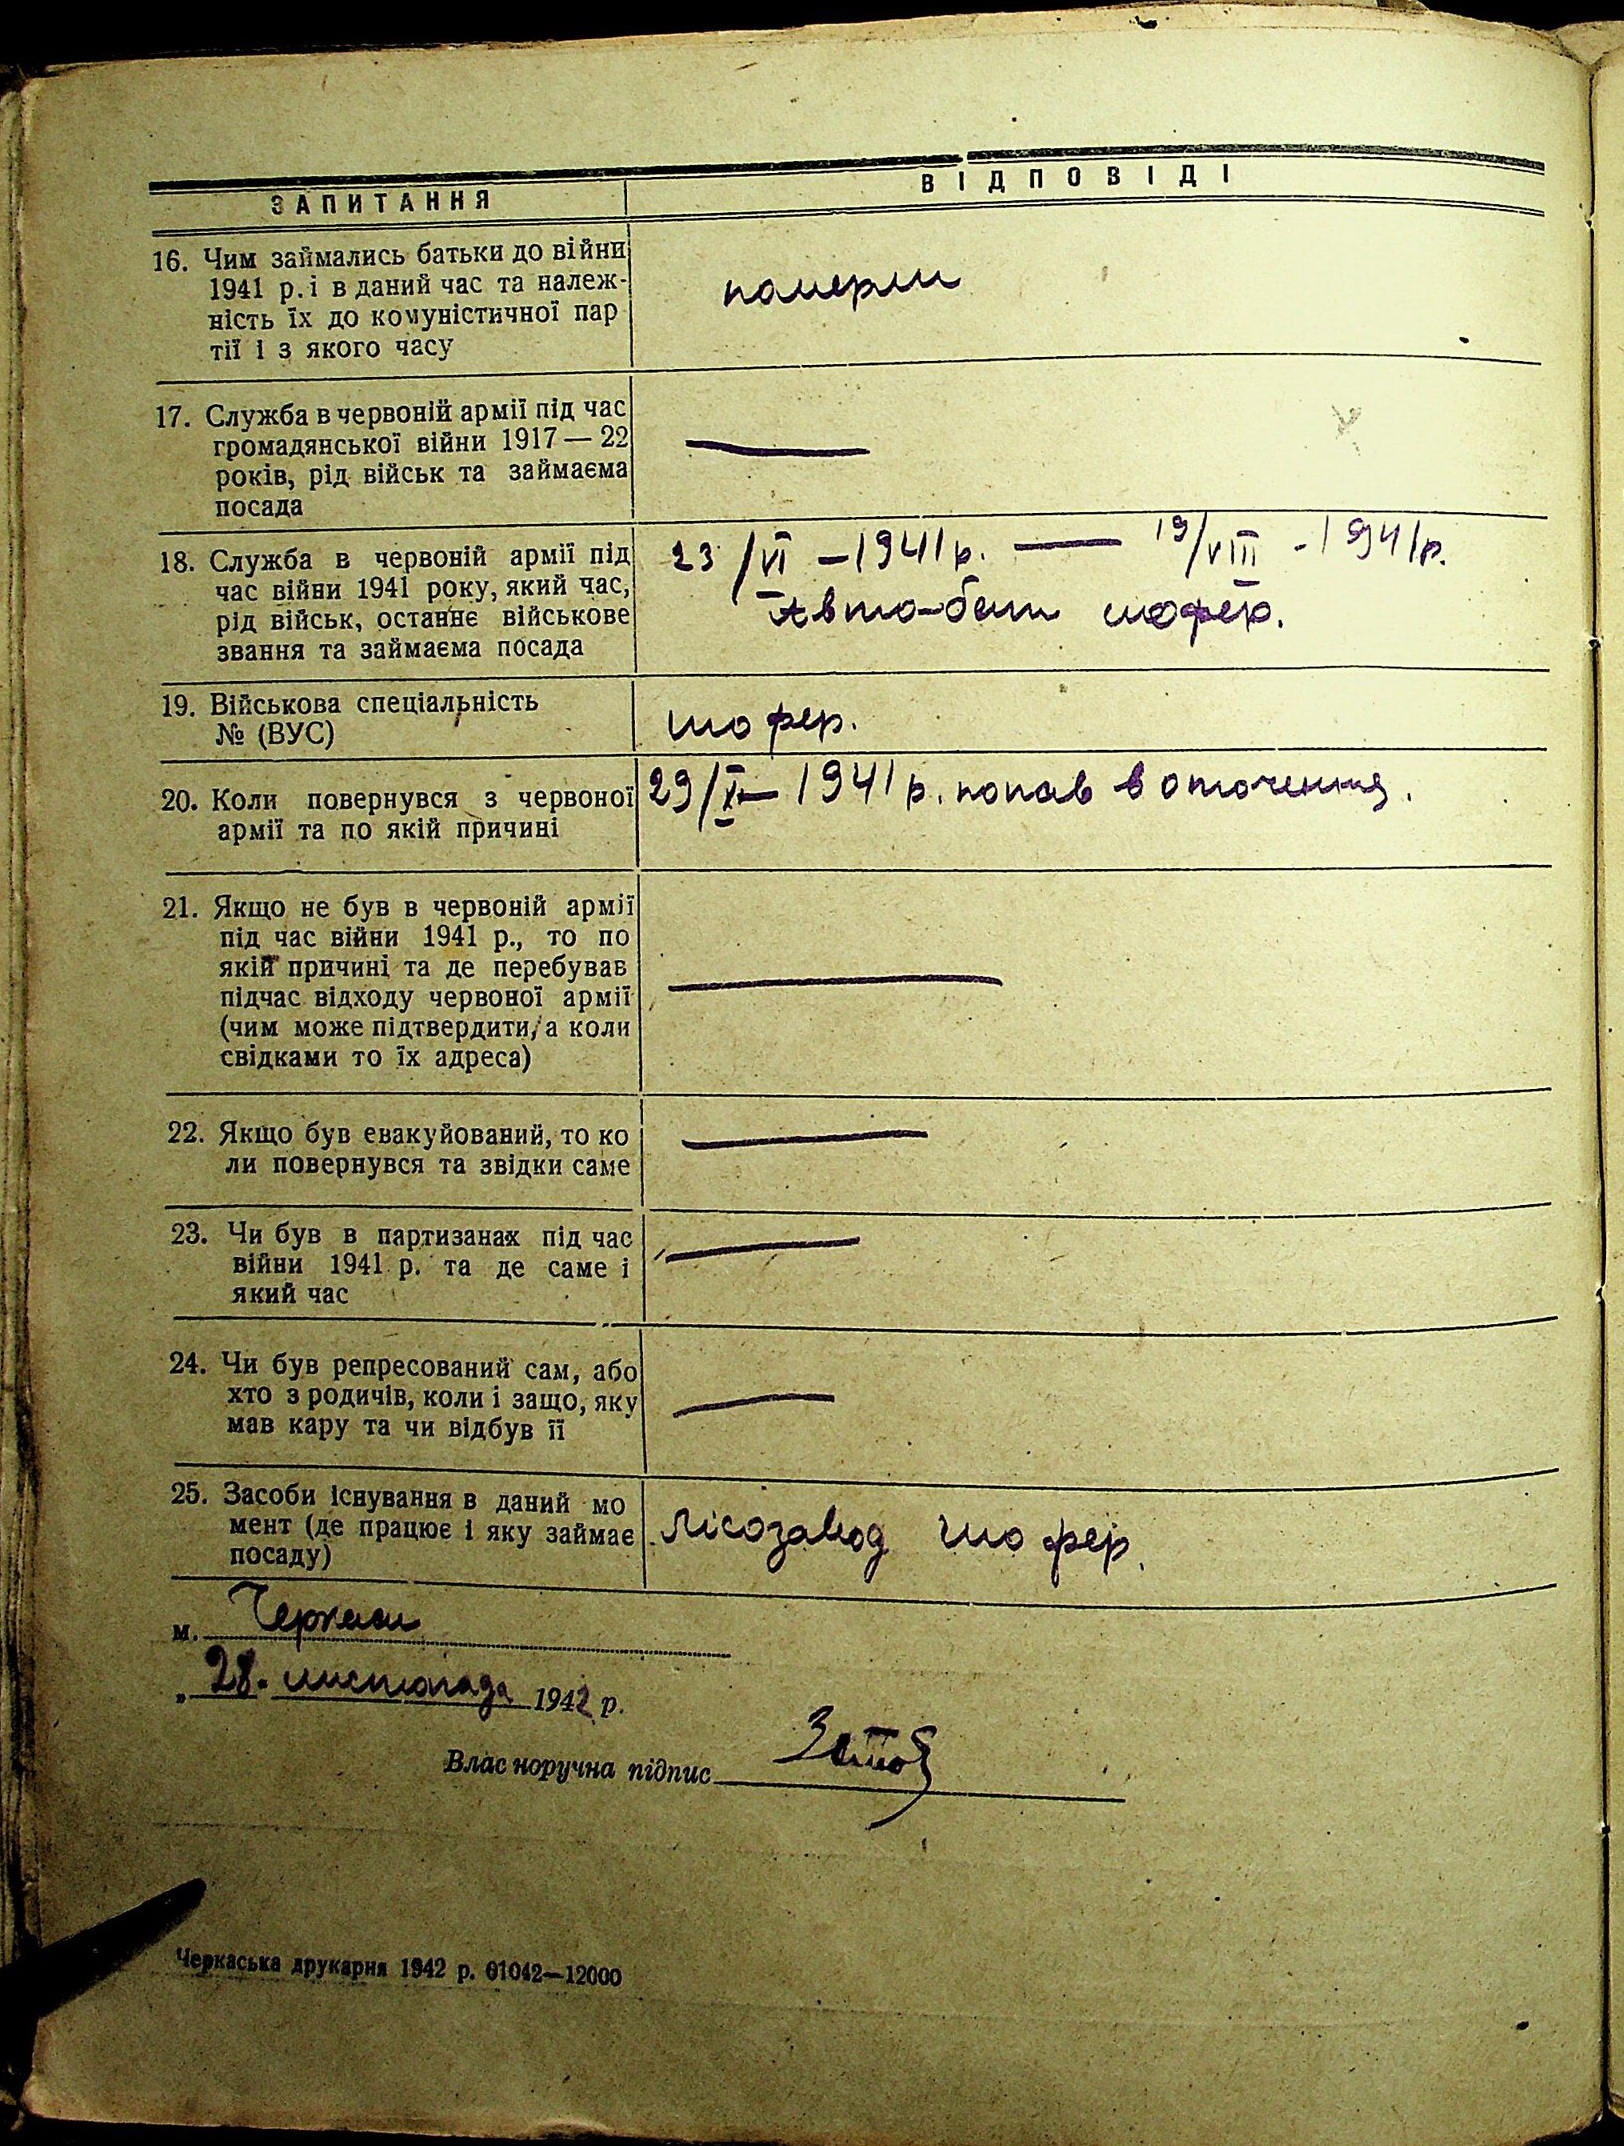 ЗАПИТАННЯ
ВІДПОВІДІ
16. Чим займались батьки до війни
1941 р. і в даний час та належ-
ність їх до комуністичної пар
тії і з якого часу
померли
17. Служба в червоній армії під час
громадянської війни 1917 — 22
років, рід військ та займаєма
посада
—
18. Служба в червоній армії під
час війни 1941 року, який час,
рід військ, останнє військове
звання та займаєма посада
23/VI – 1941 р. — 19/VIII - 1941 р.
Авто-бат шофер.
19. Військова спеціальність
№ (ВУС)
шофер.
20. Коли повернувся з червоної
армії та по якій причині
29/X – 1941 р. попав в оточення.
21. Якщо не був в червоній армії
під час війни 1941 р., то по
якій причині та де перебував
підчас відходу червоної армії
(чим може підтвердити, а коли
свідками то їх адреса)
—
22. Якщо був евакуйований, то ко
ли повернувся та звідки саме
—
23. Чи був в партизанах під час
війни 1941 р. та де саме і
який час
—
24. Чи був репресований сам, або
хто з родичів, коли і защо, яку
мав кару та чи відбув її
—
25. Засоби існування в даний мо
мент (де працює і яку займає
посаду)
Лісозавод шофер.
м. Черкаси
„ 28. листопада 1942 р.
Власноручна підпис
Черкаська друкарня 1942 р. 01042—12000